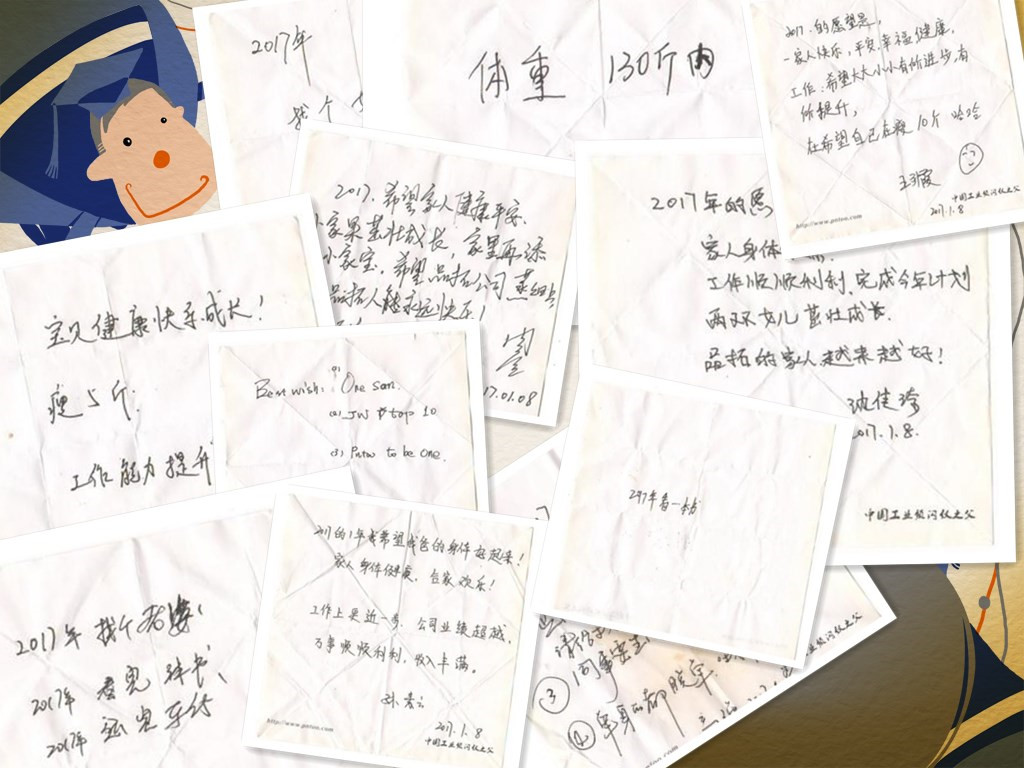 2017年
找个
体重 130斤内
2017.的愿望是,
一家人快乐,平安幸福健康,
工作:希望大大小小有所进步,有
所提升,
在希望自己在瘦10斤 哈哈
中国工业热风仪之父
2017.1.8
http://www.pntoo.com
2017.希望家人健康平安.
小家果茁壮成长,家里再添
小家宝.希望品拓公司蒸蒸
品拓人能永远快乐!
17.01.08
2017年的愿
家人身体
工作顺顺利利.完成今年计划
两双女儿茁壮成长.
品拓的家人越来越好!
沈佳玲
2017.1.8.
宝贝健康快乐成长!
瘦5斤.
工作能力提升
Best wish: (1) One son.
(2) JW top 10
(3) Pntoo to be one.
2017年看一本书
2017的1年我希望爸爸的身体好起来!
家人身体健康,全家欢乐!
工作上更近一步,公司业绩超越.
万事顺顺利利,收入丰满。
孙秀云
2017.1.8
http://www.pntoo.com
2017年 找个老婆、
2017年 看完 本书、
2017年 还完 车付
③ 同事
④ 单身的都脱单.